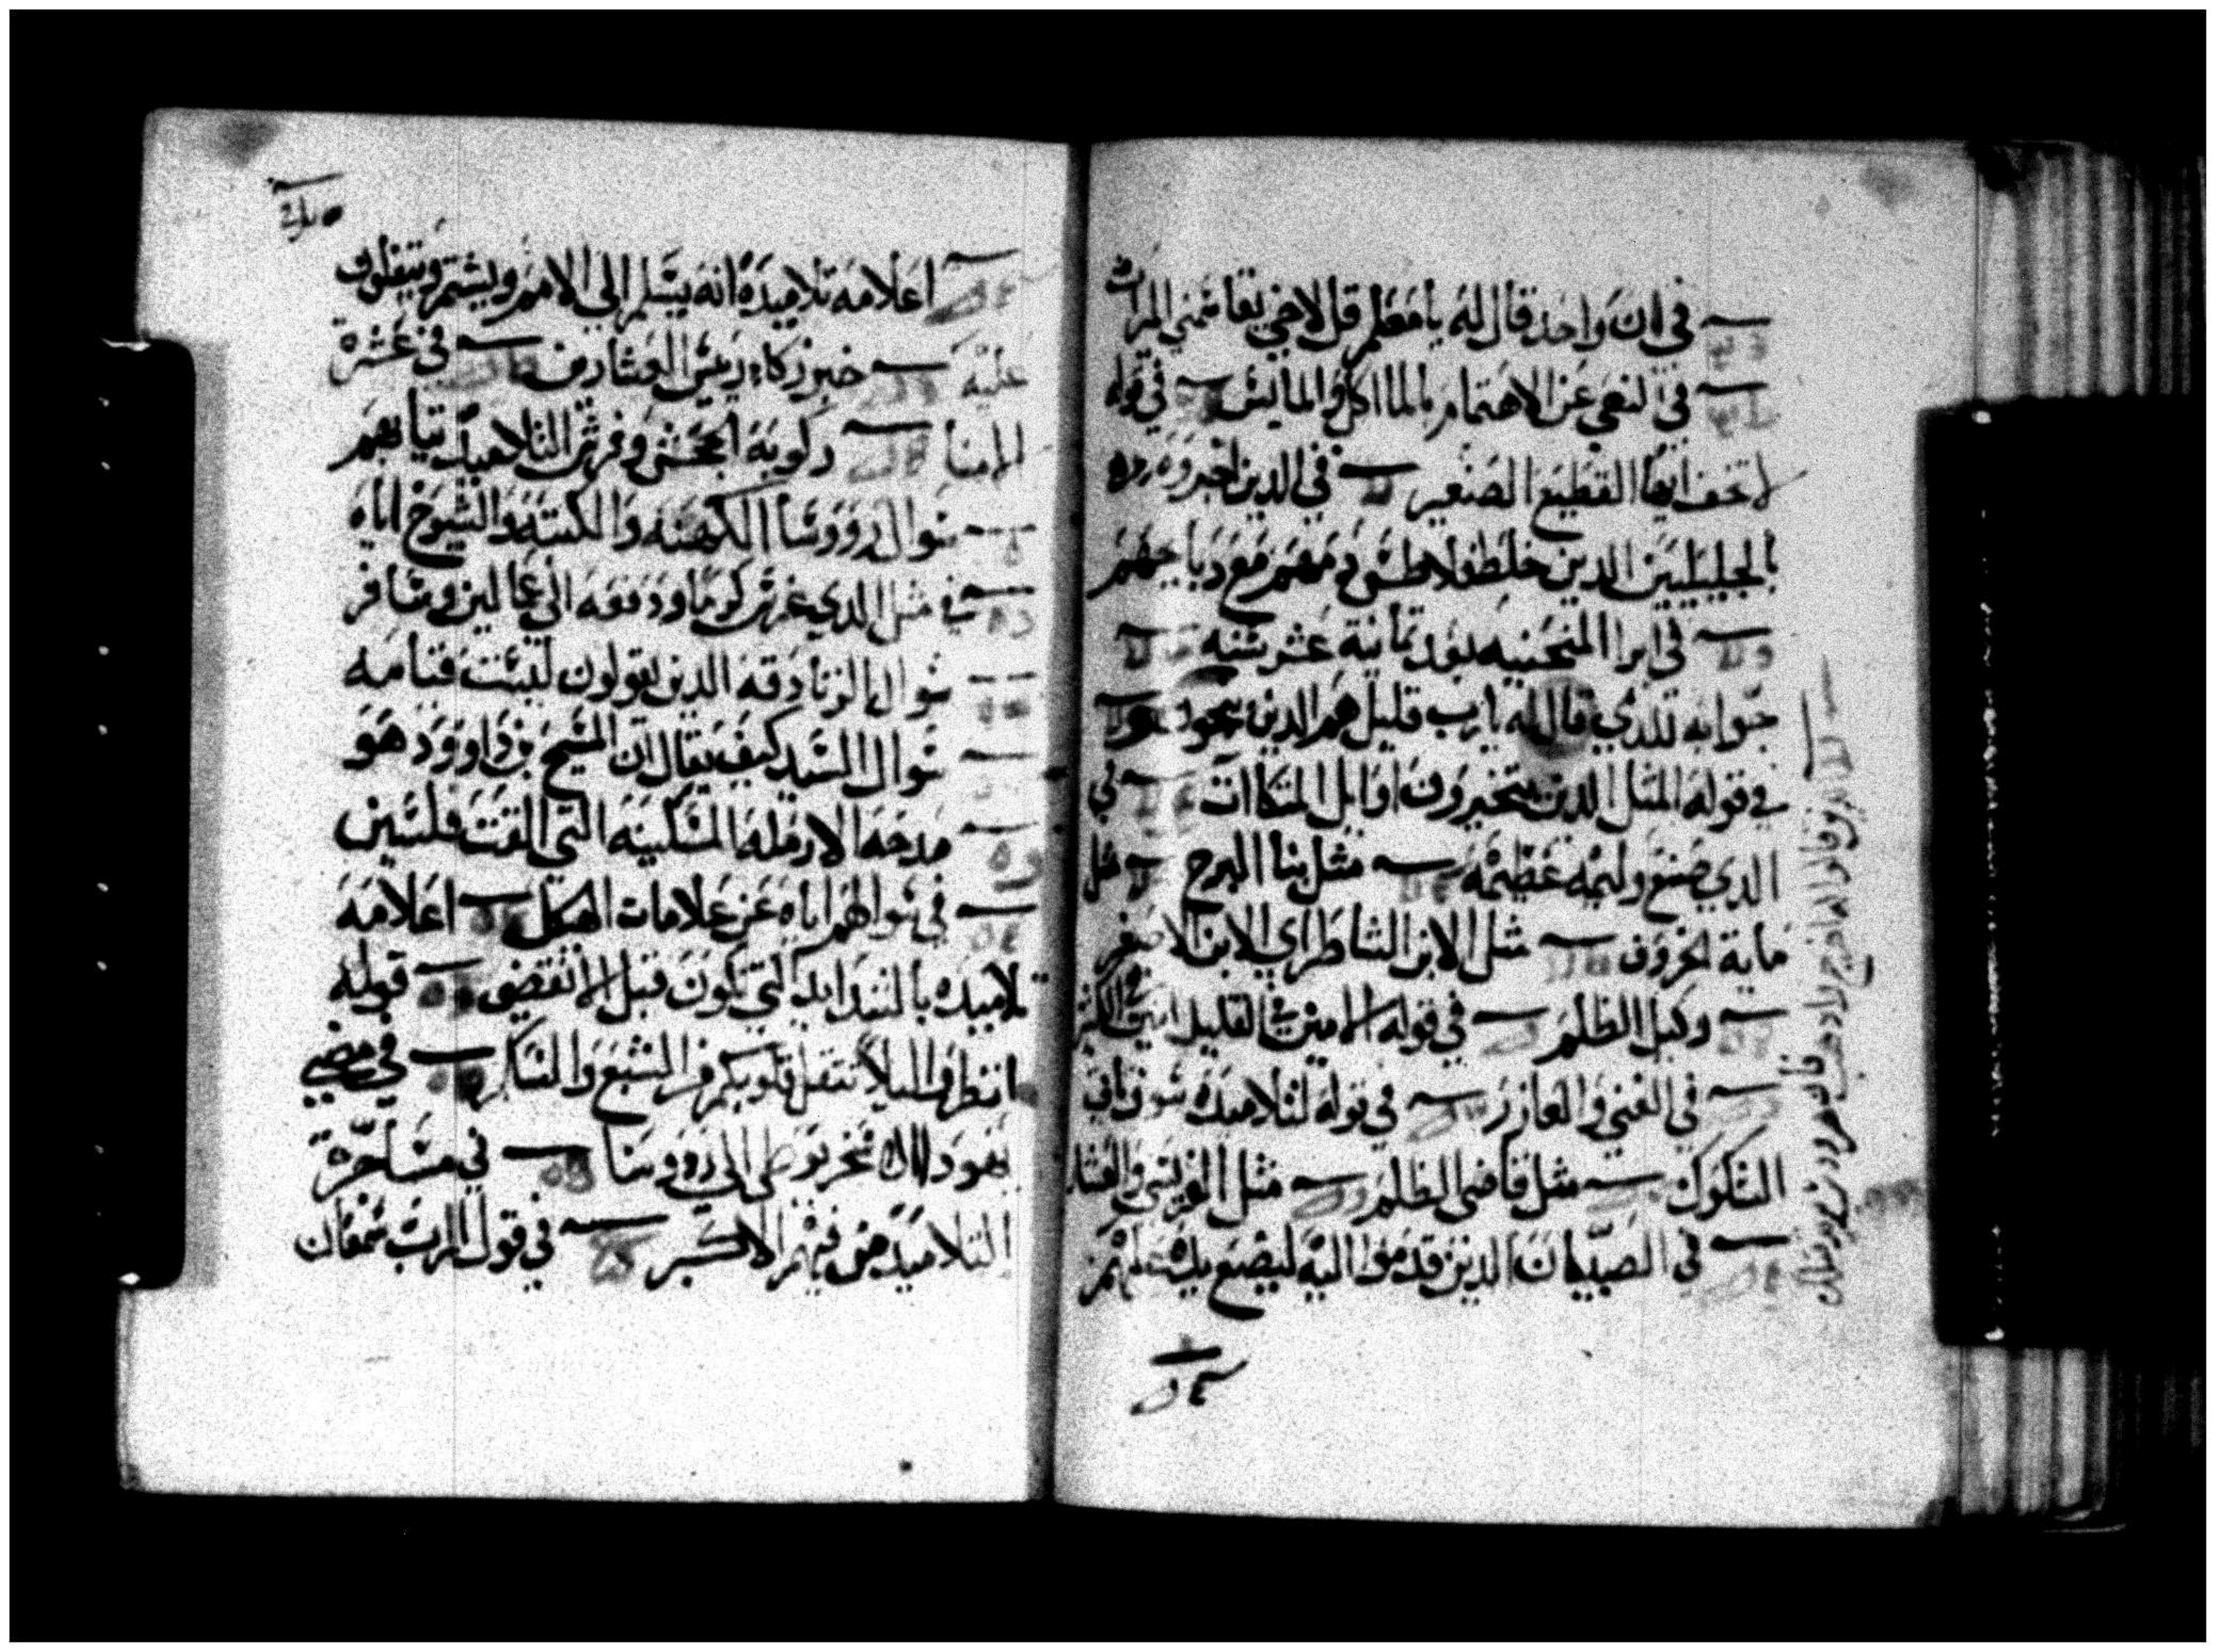 في ان واحد قال له يا معلم قل لاخي يقاسمني الميرات
في النهي عن الاهتمام بالمااكل والملابس في قوله
لا تخف ايها القطيع الصغير في الدين اخبروه
بالجليليين الدين خلط فلاطس دمهم مع دبايحهم
في ابرا المنحنيه بعد تمانية عشر سنه
جوابه للدي قال له يا رب قليل هم الدين ينجوا
في قوله المتل الدين يتخيرون اوايل المتكاات في
الدي صنع وليمه عظيمه مثل بنا البرج مثل
ماية الخروف مثل الابن الشاطر اي الابن الاصغر
وكيل الظلم في قوله الامين في القليل امين في الكثير
في الغني والعازر في قوله لتلاميده سوف تاتي
الشكوك مثل قاضي الظلم مثل الفريسي والعشار
في الصبيان الدين قدموا اليه ليضع يده عليهم
اعلامه تلاميده انه يسلم الي الامم ويشتم ويتفلون
عليه خبر زكاء ريس العشارين في عشرة
الامنا ركوبه الجحش وفرش التلاميد تيابهم
سوال رووسا الكهنه والكتبه والشيوخ اياه
في مثل الدي غرس كرما ودفعه الي عمالين وسافر
سوال الزنادقه الدين يقولون ليست قيامه
سوال السيد كيف يقال ان المسيح بن داوود هو
مدحه الارمله المسكينه التي القت فلسين
في سوالهم اياه عن علامات الهيكل اعلامه
تلاميده بالشدايد التي تكون قبل الانقضى قوله
انظروا ليلا تتقل قلوبكم من الشبع والسكر في مضي
يهودا الاسخريوطي الي رووسا في مشاجرة
التلاميد من فيهم الاكبر في قول الرب سمعان